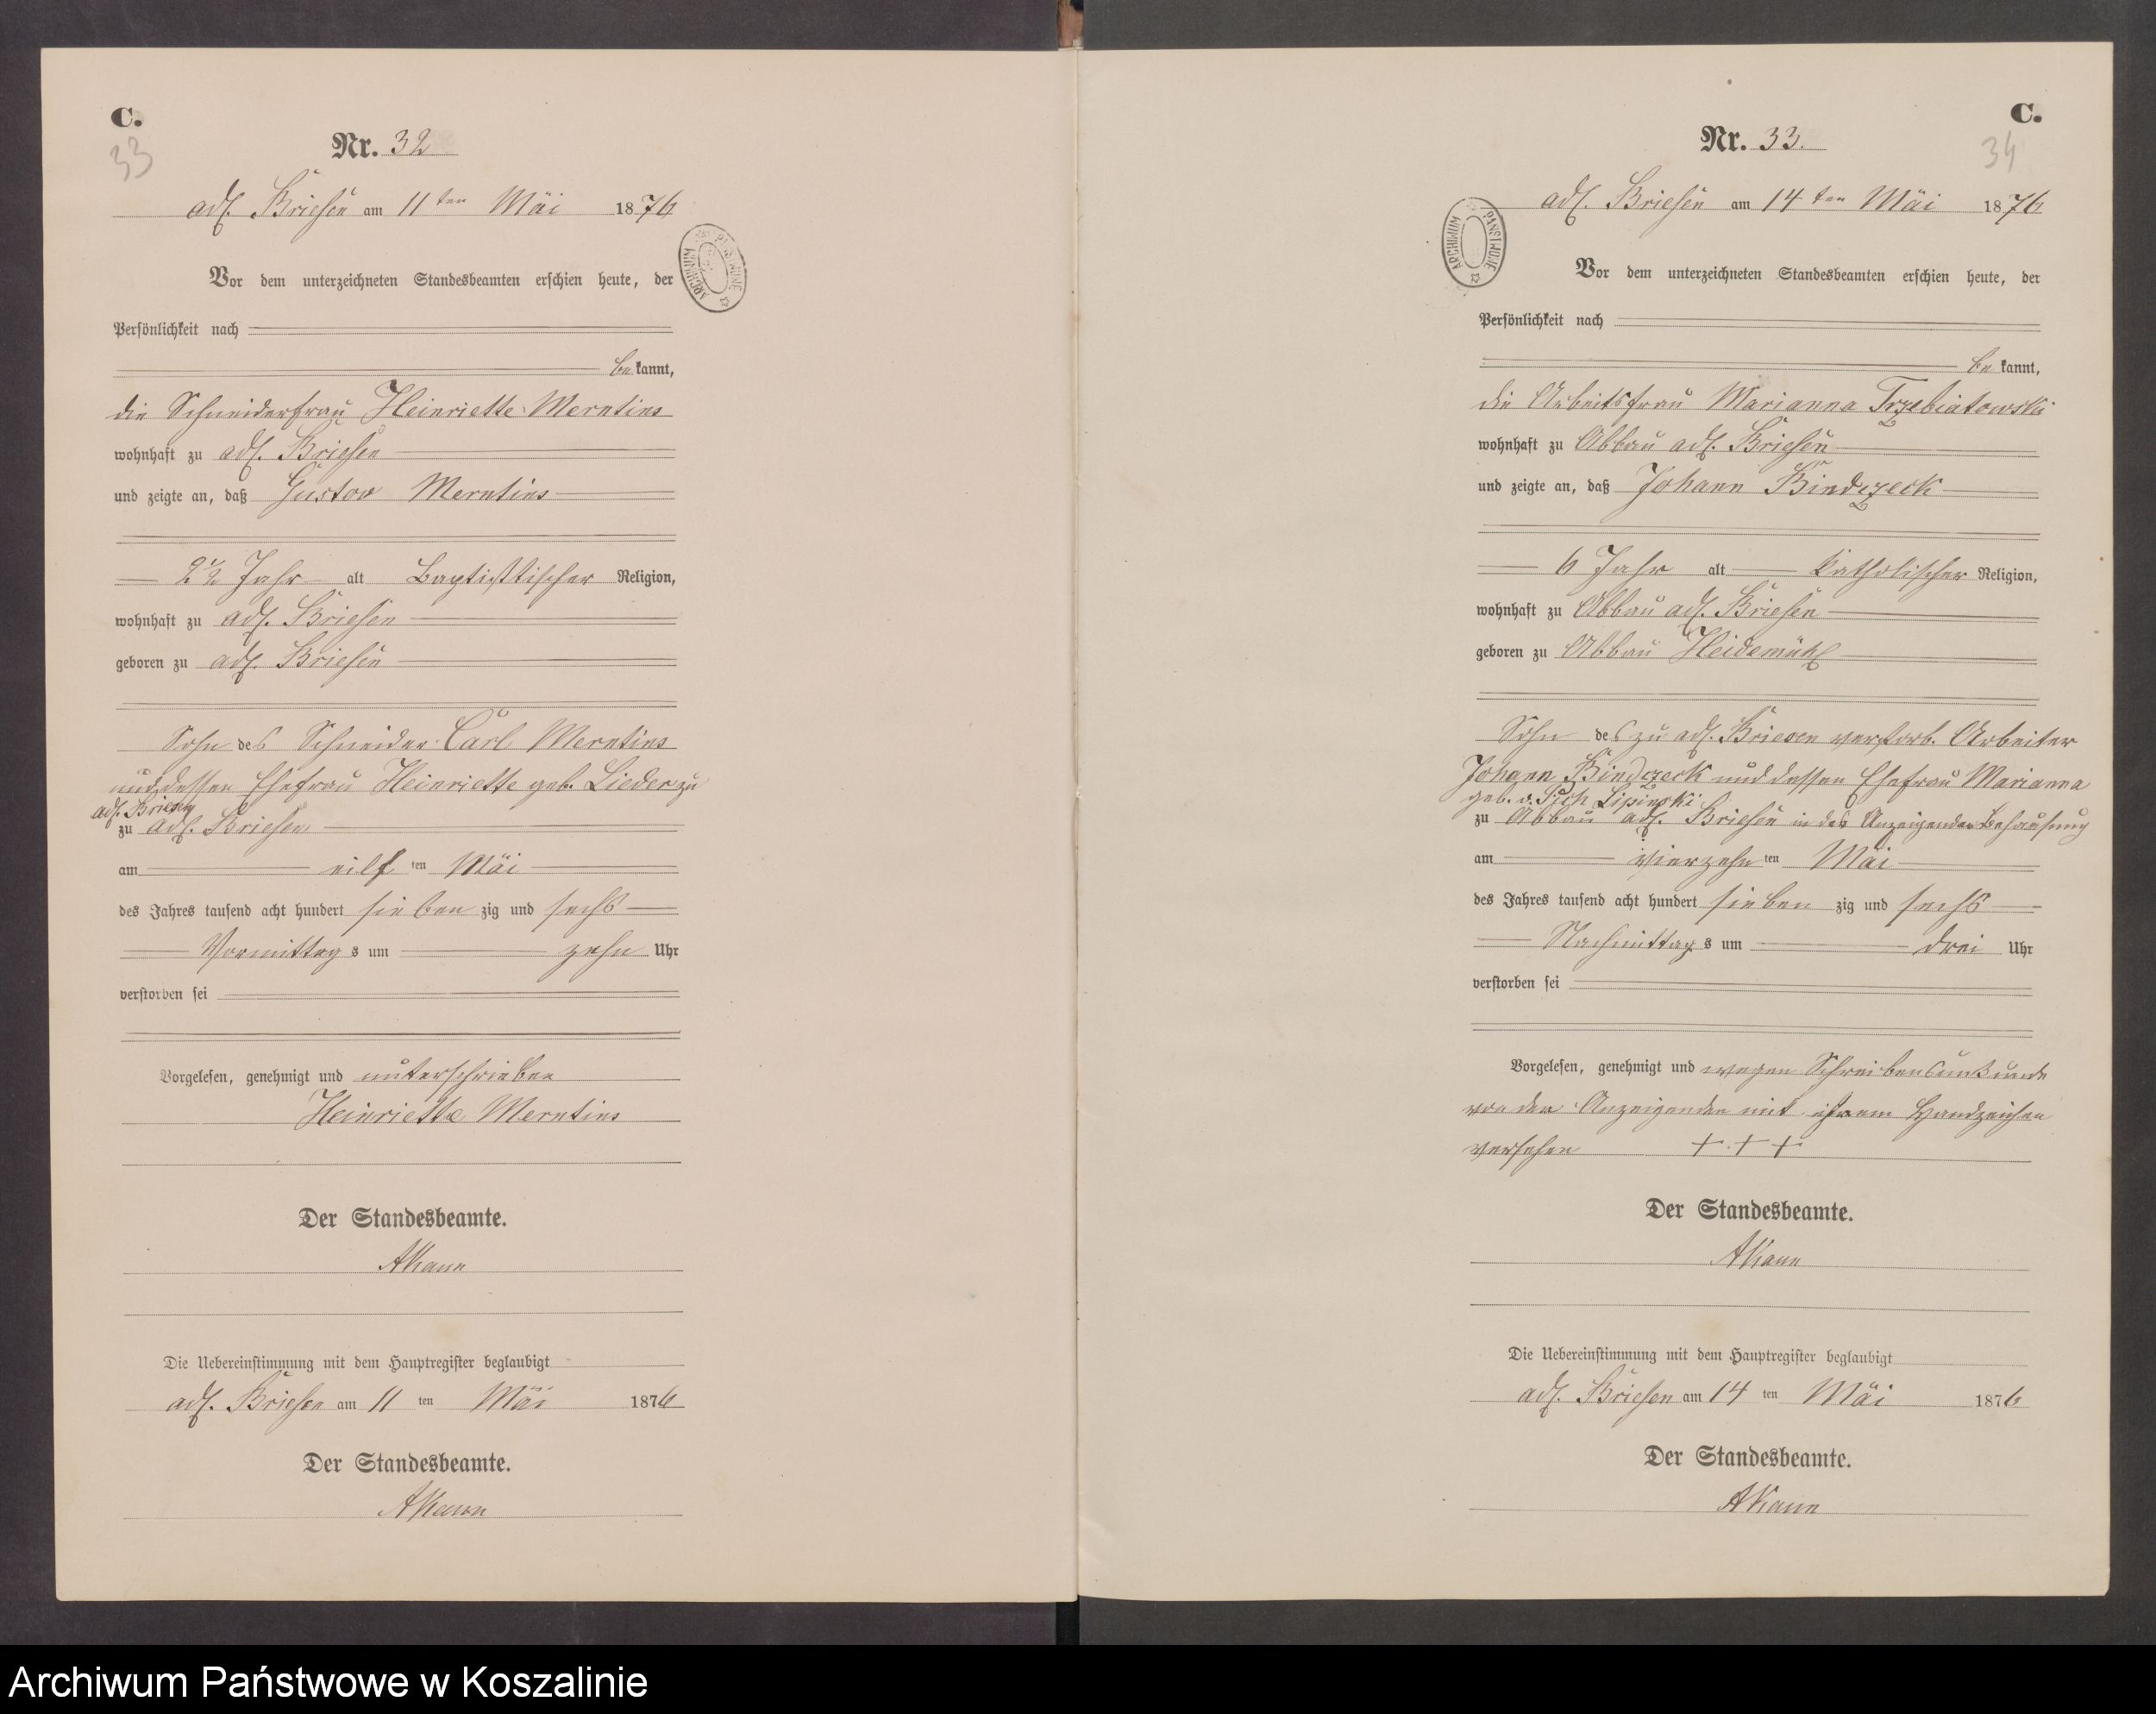 C.
33
Nr. 32
adl. Briesen am 11ten Mai 1876
Vor dem unterzeichneten Standesbeamten erschien heute, der
Persönlichkeit nach
bekannt,
die Schneiderfrau Heinriette Merntins
wohnhaft zu adl. Briesen
und zeigte an, daß Gustav Merntins
2½ Jahr alt Baptistischer Religion,
wohnhaft zu adl. Briesen
geboren zu adl. Briesen
Sohn des Schneider Carl Merntins
und dessen Ehefrau Heinriette geb. Lieder zu
adl. Briesen
zu adl. Briesen
am eilften Mai
des Jahres tausend acht hundert siebenzig und sechs
Vormittags um zehn Uhr
verstorben sei
Vorgelesen, genehmigt und unterschrieben
Heinriette Merntins
Der Standesbeamte.
AKann
Die Uebereinstimmung mit dem Hauptregister beglaubigt
adl. Briesen am 11ten Mai 1876
Der Standesbeamte.
AKann
ARCHIWUM PAŃSTWOWE
C.
34
Nr. 33.
adl. Briesen am 14ten Mai 1876
Vor dem unterzeichneten Standesbeamten erschien heute, der
Persönlichkeit nach
bekannt,
die Arbeitsfrau Marianna Trzebiatowski
wohnhaft zu Abbau adl. Briesen
und zeigte an, daß Johann Bindczeck
6 Jahr alt katholischer Religion,
wohnhaft zu Abbau adl. Briesen
geboren zu Abbau Heidemühl
Sohn des zu adl. Briesen verstorb. Arbeiter
Johann Bindczeck und dessen Ehefrau Marianna
geb. v. Lipinski
zu Abbau adl. Briesen in der Anzeigenden Behausung
am vierzehnten Mai
des Jahres tausend acht hundert siebenzig und sechs
Nachmittags um drei Uhr
verstorben sei
Vorgelesen, genehmigt und wegen Schreibensunkunde
von der Anzeigenden mit ihrem Handzeichen
versehen + + +
Der Standesbeamte.
AKann
Die Uebereinstimmung mit dem Hauptregister beglaubigt
adl. Briesen am 14ten Mai 1876
Der Standesbeamte.
AKann
ARCHIWUM PAŃSTWOWE
Archiwum Państwowe w Koszalinie